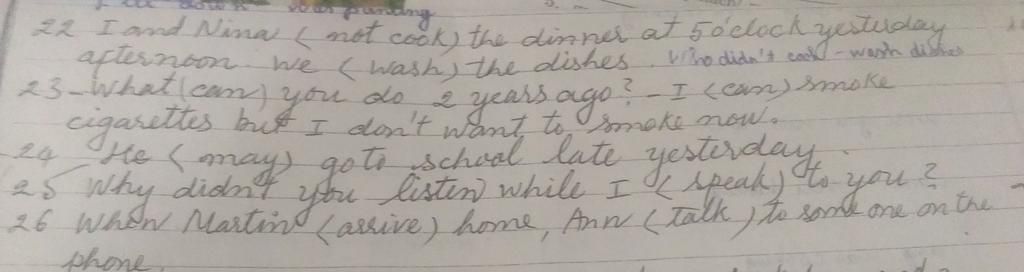 22 I and Nina (not cook) the dinner at 5 o'clock yesterday
afternoon. We (wash) the dishes. Who didn't cook - wash dishes
23 - What (can) you do 2 years ago? - I (can) smoke
cigarettes but I don't want to smoke now.
24 He (may) go to school late yesterday.
25 Why didn't you listen while I (speak) to you?
26 When Martin (arrive) home, Ann (talk) to some one on the
phone.